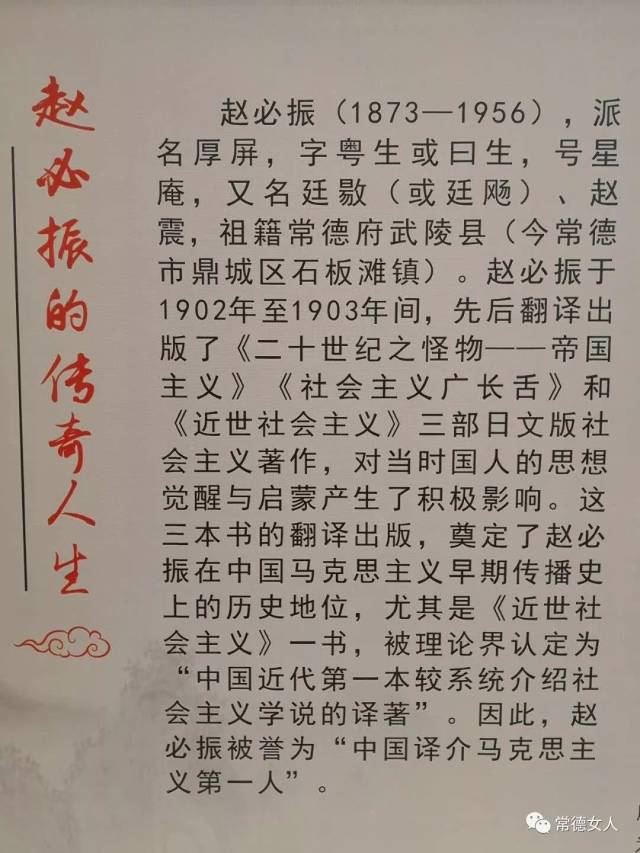 赵必振的传奇人生
赵必振（1873—1956），派
名厚屏，字粤生或曰生，号星
庵，又名廷敭（或廷飏）、赵
震，祖籍常德府武陵县（今常德
市鼎城区石板滩镇）。赵必振于
1902年至1903年间，先后翻译出
版了《二十世纪之怪物——帝国
主义》《社会主义广长舌》和
《近世社会主义》三部日文版社
会主义著作，对当时国人的思想
觉醒与启蒙产生了积极影响。这
三本书的翻译出版，奠定了赵必
振在中国马克思主义早期传播史
上的历史地位，尤其是《近世社
会主义》一书，被理论界认定为
“中国近代第一本较系统介绍社
会主义学说的译著”。因此，赵
必振被誉为“中国译介马克思主
义第一人”。
常德女人